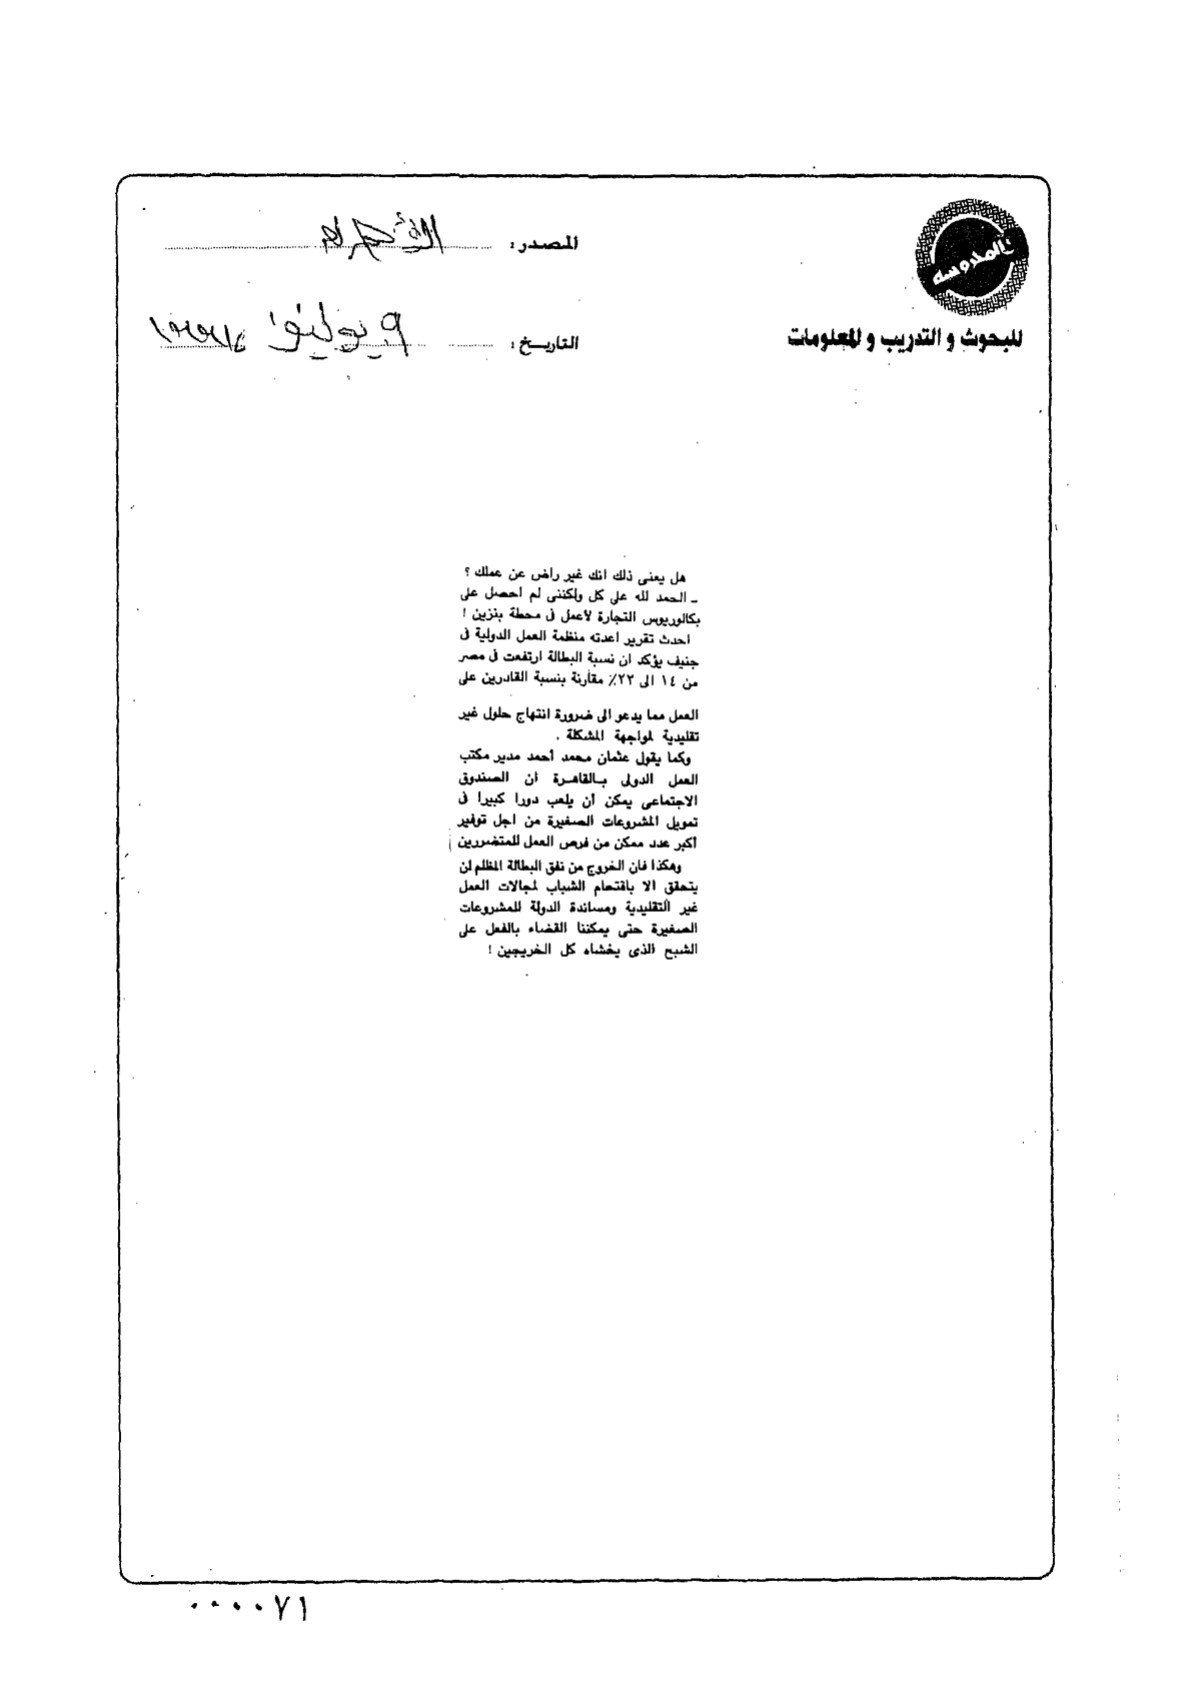 المحروسه
للبحوث و التدريب و المعلومات
المصدر : الأهرام
التاريخ : ٩ يوليو
هل يعنى ذلك انك غير راض عن عملك ؟
ـ الحمد لله على كل ولكننى لم احصل على
بكالوريوس التجارة لأعمل فى محطة بنزين !
احدث تقرير اعدته منظمة العمل الدولية فى
جنيف يؤكد ان نسبة البطالة ارتفعت فى مصر
من ١٤ الى ٢٢٪ مقارنة بنسبة القادرين على
العمل مما يدعو الى ضرورة انتهاج حلول غير
تقليدية لمواجهة المشكلة .
وكما يقول عثمان محمد أحمد مدير مكتب
العمل الدولى بالقاهرة ان الصندوق
الاجتماعى يمكن أن يلعب دورا كبيرا فى
تمويل المشروعات الصغيرة من اجل توفير
أكبر عدد ممكن من فرص العمل للمتضررين
وهكذا فان الخروج من نفق البطالة المظلم لن
يتحقق الا باقتحام الشباب لمجالات العمل
غير التقليدية ومساندة الدولة للمشروعات
الصغيرة حتى يمكننا القضاء بالفعل على
الشبح الذى يخشاه كل الخريجين !
٠٠٠٠٧١